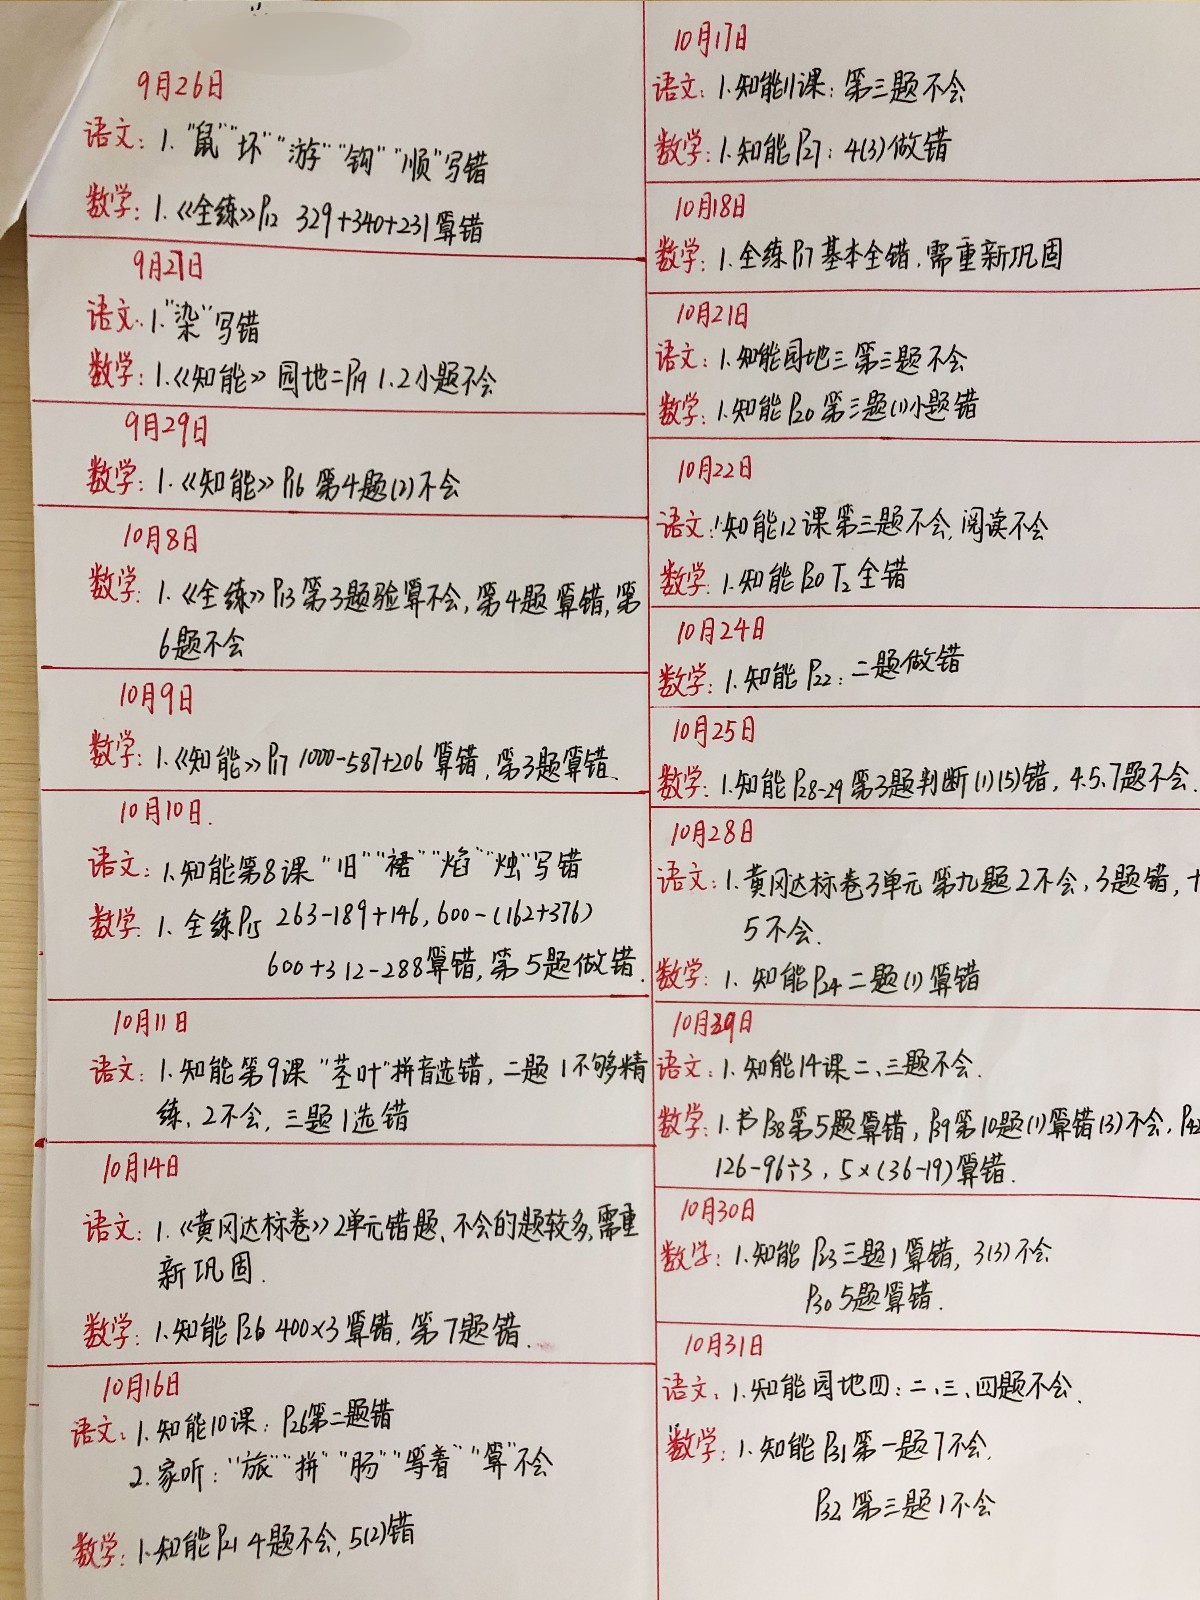 9月26日
语文：1."鼠""坏""游""钩""顺"写错
数学：1.《全练》P12 329+340+231算错
9月27日
语文：1."染"写错
数学：1.《知能》园地二P19 1.2小题不会
9月29日
数学：1.《知能》P16 第4题(2)不会
10月8日
数学：1.《全练》P13第3题验算不会，第4题算错，第
6题不会
10月9日
数学：1.《知能》P17 1000-587+206 算错，第3题算错.
10月10日.
语文：1.知能第8课 "旧""裙""焰""烛"写错
数学 1. 全练P15 263-189+146, 600-(162+376)
600+312-288算错，第5题做错.
10月11日
语文：1.知能第9课 "茎叶"拼音选错，二题1不够精
练，2不会，三题1选错
10月14日
语文：1.《黄冈达标卷》2单元错题、不会的题较多，需重
新巩固.
数学：1.知能P26 400×3算错，第7题错.
10月16日
语文：1.知能10课：P26第二题错
2.家听："旅""拼""肠""着""算"不会
数学：1.知能P21 4题不会, 5(2)错
10月17日
语文：1.知能11课：第三题不会
数学：1.知能P27: 4(3)做错
10月18日
数学：1.全练P17基本全错，需重新巩固
10月21日
语文：1.知能园地三 第三题不会
数学：1.知能P20 第三题(1)小题错
10月22日
语文：1.知能12课第三题不会，阅读不会
数学：1.知能P20 T2 全错
10月24日
数学：1.知能P22：二题做错
10月25日
数学：1.知能P28-29 第3题判断(1)(5)错，4.5.7题不会.
10月28日
语文：1.黄冈达标卷3单元 第九题2不会，3题错，十
5不会.
数学：1. 知能P24 二题(1)算错
10月29日
语文：1.知能14课二、三题不会.
数学：1.书P38第5题算错，P39第10题(1)算错(3)不会，P42
126-96÷3, 5×(36-19)算错.
10月30日
数学：1.知能 P23三题1算错，3(3)不会
P30 5题算错.
10月31日
语文：1.知能园地四：二、三、四题不会.
数学：1.知能P31第一题7不会.
P32第三题1不会